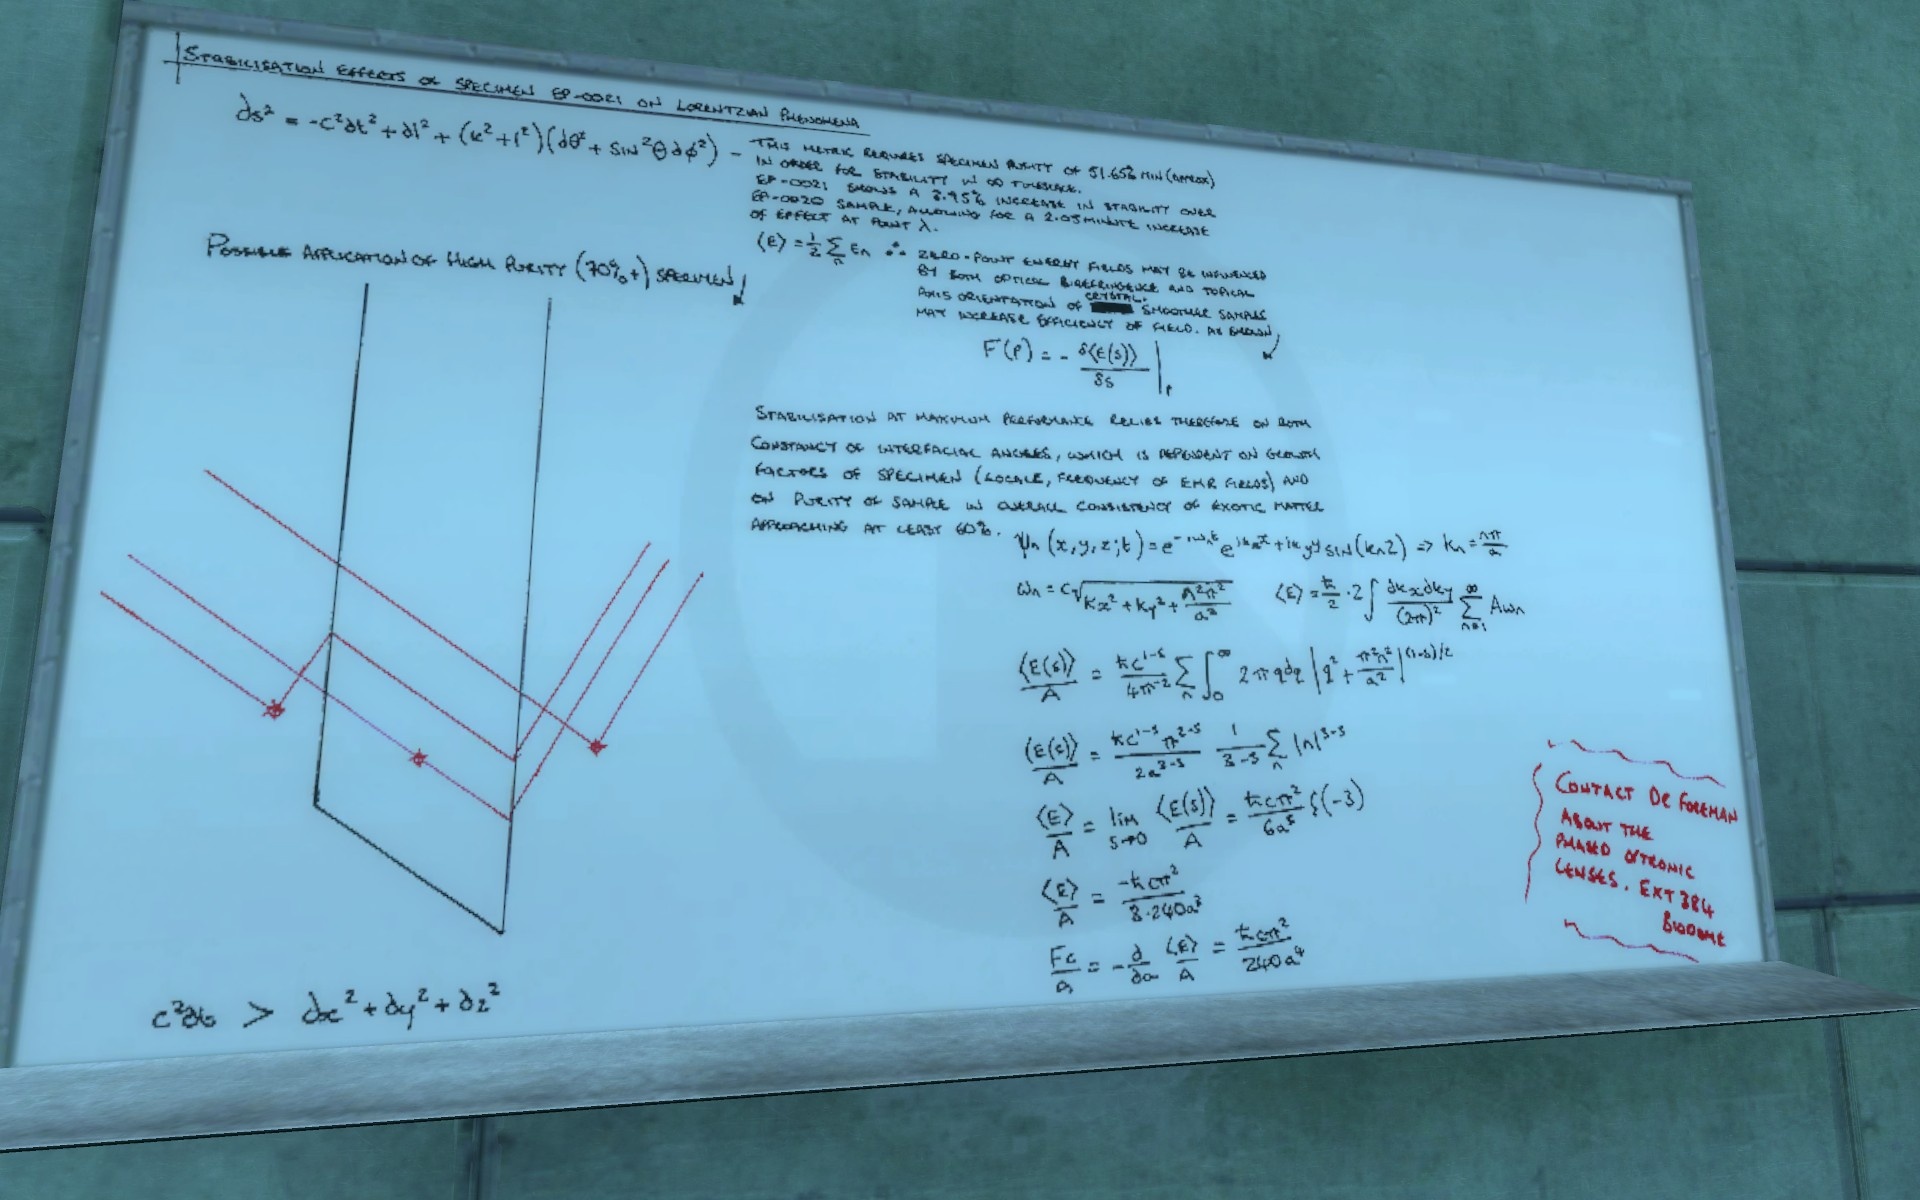 STABILISATION EFFECTS OF SPECIMEN EP-0021 ON LORENTZIAN PHENOMENA
∂s² = -c²∂t² + ∂l² + (k² + l²)(∂θ² + sin²θ∂φ²) –
THIS METRIC REQUIRES SPECIMEN PURITY OF 51.65% MIN (APPROX)
IN ORDER FOR STABILITY IN ∞ TIMESCALE.
EP-0021 SHOWS A 3.95% INCREASE IN STABILITY OVER
EP-0020 SAMPLE, ALLOWING FOR A 2.05 MINUTE INCREASE
OF EFFECT AT POINT λ.
POSSIBLE APPLICATION OF HIGH PURITY (70%+) SPECIMEN
⟨E⟩ = ½ Σn En ∴ ZERO-POINT ENERGY FIELDS MAY BE INFLUENCED
BY BOTH OPTICAL BIREFRINGENCE AND TOPICAL
AXIS ORIENTATION OF CRYSTAL. SMOOTHER SAMPLES
MAY INCREASE EFFICIENCY OF FIELD. AS SHOWN
F(P) = - δ⟨E(s)⟩/δs |P
STABILISATION AT MAXIMUM PERFORMANCE RELIES THEREFORE ON BOTH
CONSTANCY OF INTERFACIAL ANGLES, WHICH IS DEPENDENT ON GROWTH
FACTORS OF SPECIMEN (LOCALE, FREQUENCY OF EMR FIELDS) AND
ON PURITY OF SAMPLE IN OVERALL CONSISTENCY OF EXOTIC MATTER
APPROACHING AT LEAST 60%.
ψn(x,y,z;t) = e^(-iωnt) e^(ikxx + ikyy) SIN(knz) ⇒ kn = nπ/a
ωn = c√(kx² + ky² + n²π²/a²) ⟨E⟩ = ħ/2 · 2∫ ∂kx∂ky/(2π)² Σ(n=1 to ∞) Aωn
⟨E(s)⟩/A = ħc^(1-s)/4π² Σn ∫0^∞ 2πqdq |q² + π²n²/a²|^((1-s)/2)
⟨E(s)⟩/A = ħc^(1-s)π^(2-s)/2a^(3-s) 1/(3-s) Σn |n|^(3-s)
⟨E⟩/A = lim s→0 ⟨E(s)⟩/A = ħcπ²/6a³ ζ(-3)
⟨E⟩/A = -ħcπ²/3·240a³
Fc/a = -∂/∂a ⟨E⟩/A = ħcπ²/240a⁴
c²∂t > ∂x² + ∂y² + ∂z²
CONTACT DR FOREMAN
ABOUT THE
PHASED
LENSES. EXT 384
BIODOME